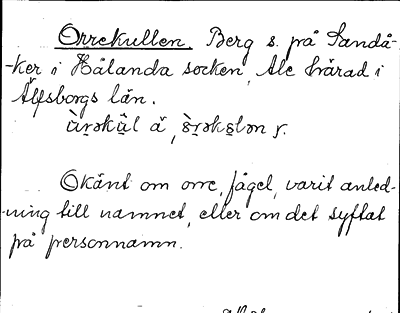 Orrekullen. Berg s. på Sandå-
-ker i Hålanda socken, Ale härad i
Älfsborgs län.
ä,
Okänt om orre, fågel, varit anled-
-ning till namnet, eller om det syftat
på personnamn.